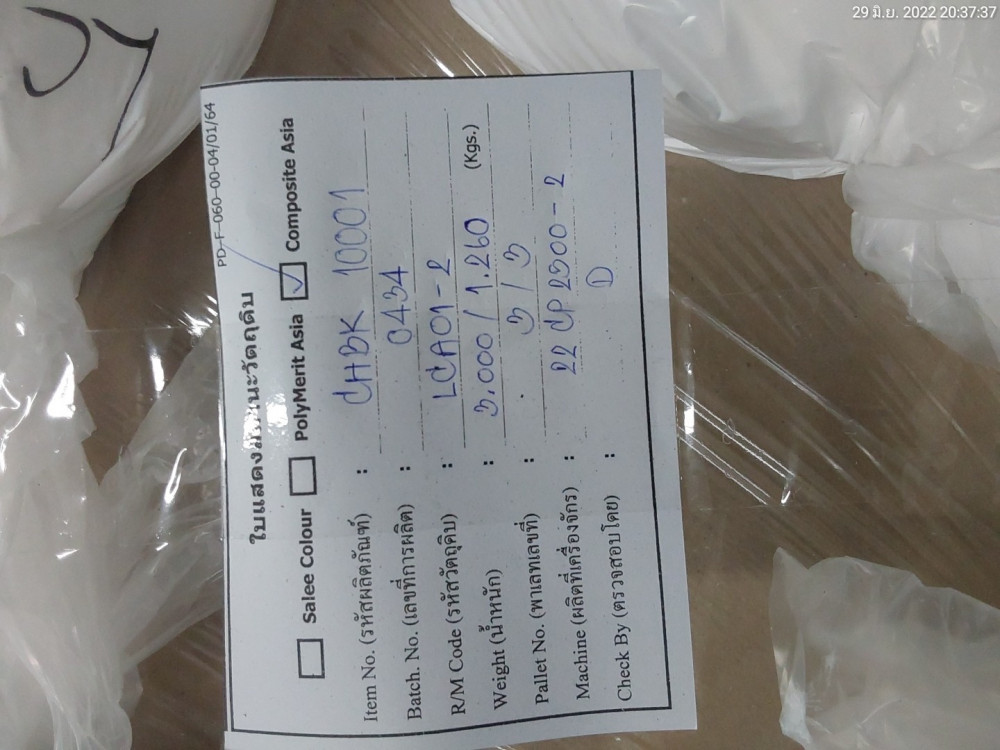 29 มิ.ย. 2022 20:37:37
PD-F-060-00-04/01/64
ใบแสดง
Salee Colour PolyMerit Asia ✓ Composite Asia
Item No. (รหัสผลิตภัณฑ์) : CHBK 10001
Batch. No. (เลขที่การผลิต) : 0434
R/M Code (รหัสวัตถุดิบ) : LCA01-2
Weight (น้ำหนัก) : 3.000 / 1.260 (Kgs.)
Pallet No. (พาเลทเลขที่) : 3 / 3
Machine (ผลิตที่เครื่องจักร) : 22 CP 2500-2
Check By (ตรวจสอบโดย) : D